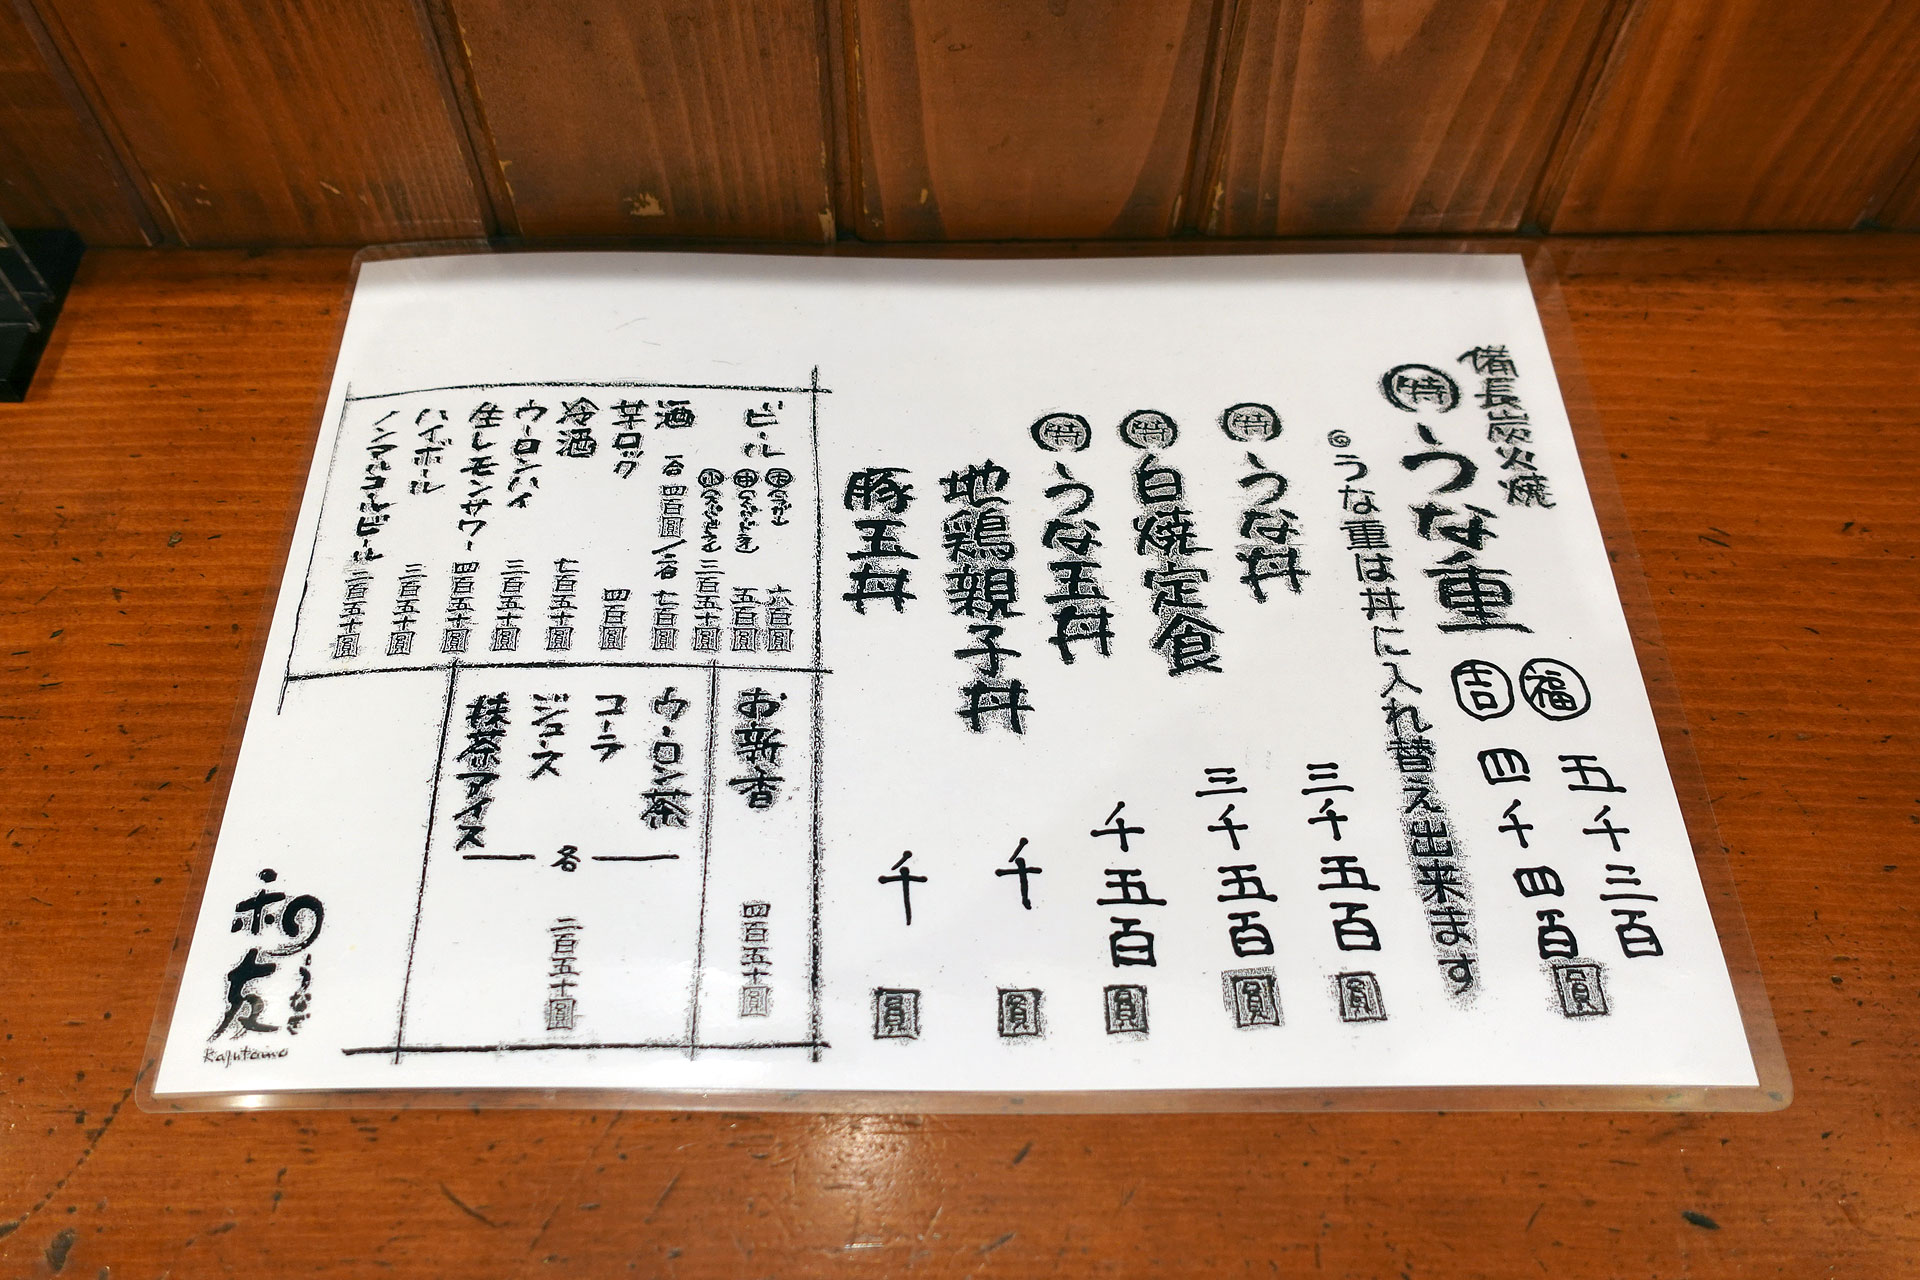 備長炭火焼
特うな重 福 五千三百
吉 四千四百圓
◎うな重は丼に入れ替え出来ます
特うな丼 三千五百圓
特白焼定食 三千五百圓
特うな玉丼 千五百圓
地鶏親子丼 千圓
豚玉丼 千圓
ビール 大 六百圓
中 五百圓
小 三百五十圓
酒 一合 四百圓/二合 七百圓
辛口ロック 四百圓
冷酒 七百五十圓
ウーロンハイ 三百五十圓
生レモンサワー 四百五十圓
ハイボール 三百五十圓
ノンアルコールビール 三百五十圓
お新香 四百五十圓
ウーロン茶
コーラ
ジュース
抹茶アイス
各 二百五十圓
和友
うなぎ
Kazutomo